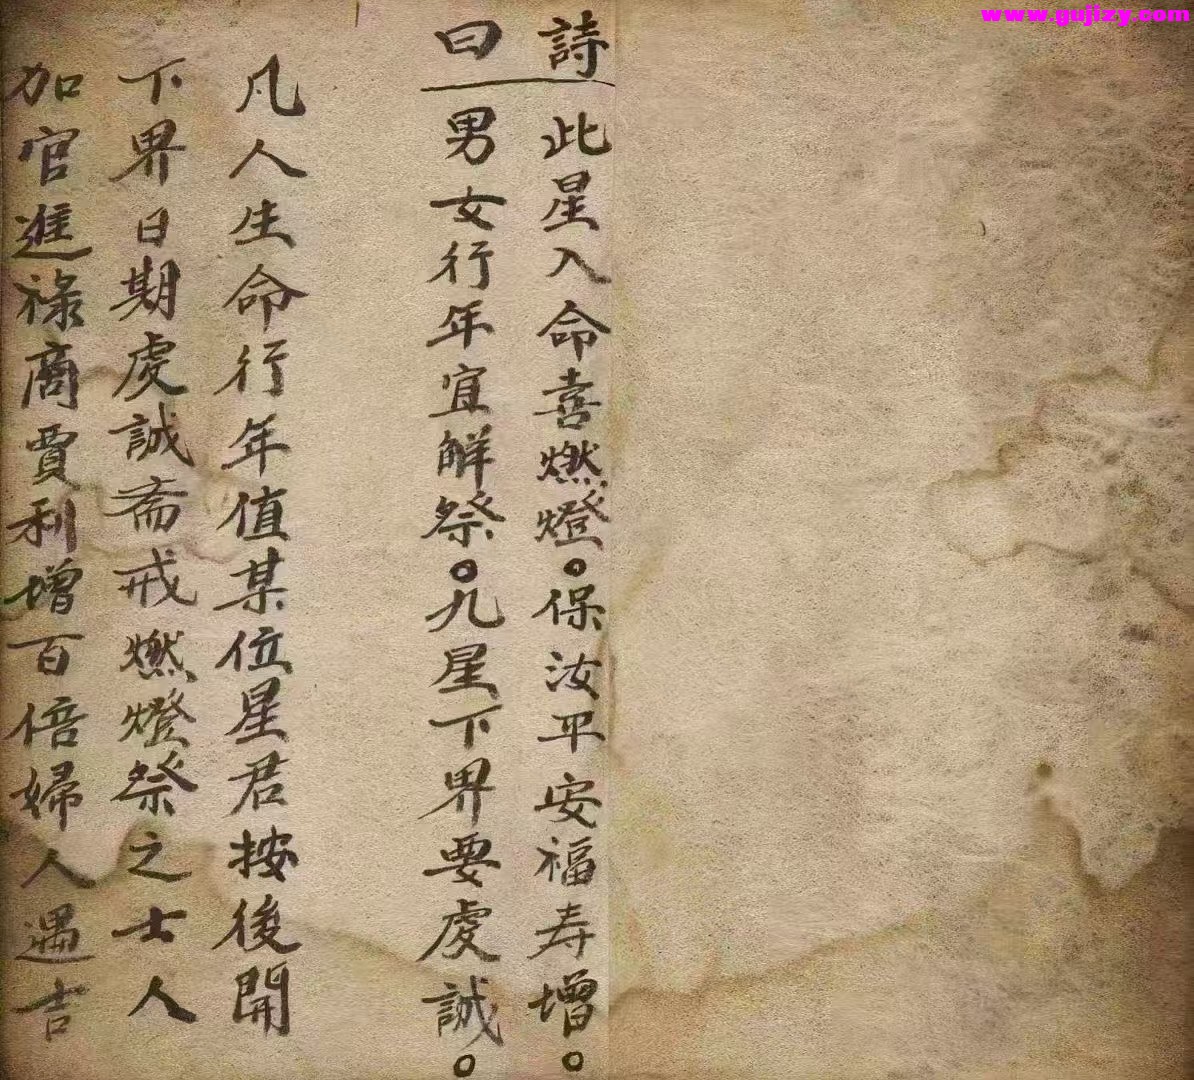 www.gujizy.com
詩
曰
此星入命喜燃燈。保汝平安福寿增。
男女行年宜解祭。九星下界要虔誠。
凡人生命行年值某位星君按後開
下界日期虔誠斋戒燃燈祭之士人
加官進祿商賈利增百倍婦人遇吉